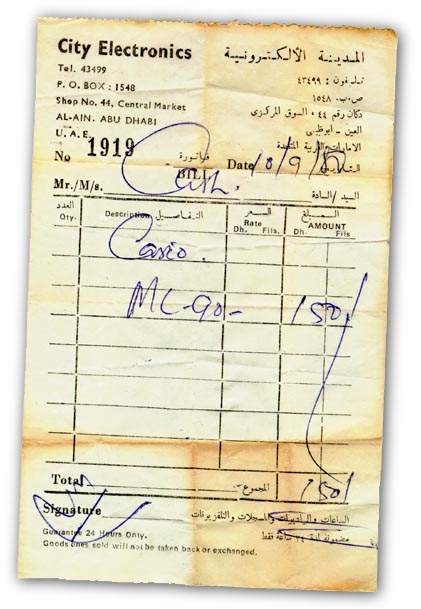 City Electronics
Tel. 43499
P. O. BOX : 1548
Shop No. 44, Central Market
AL-AIN. ABU DHABI
U. A. E.
المدينة الالكترونية
تلفون : ٤٣٤٩٩
ص.ب. ١٥٤٨
دكان رقم ٤٤ ، السوق المركزي
العين - ابوظبي
الامارات العربية المتحدة
No 1919 فاتورة Date 10/9/80 التاريخ
BILL
Mr./M/s. Cash. السيد / السادة
العدد التفاصيل السعر المبلغ
Qty. Description Rate AMOUNT
Dh. Fils. Dh. Fils
Casio.
MC-90- 150/
Total المجموع 150/
Signature الساعات والراديوات والمسجلات والتلفزيونات
Guarantee 24 Hours Only. مضمونة لمدة ٢٤ ساعة فقط
Goods ones sold will not be taken back or exchanged.